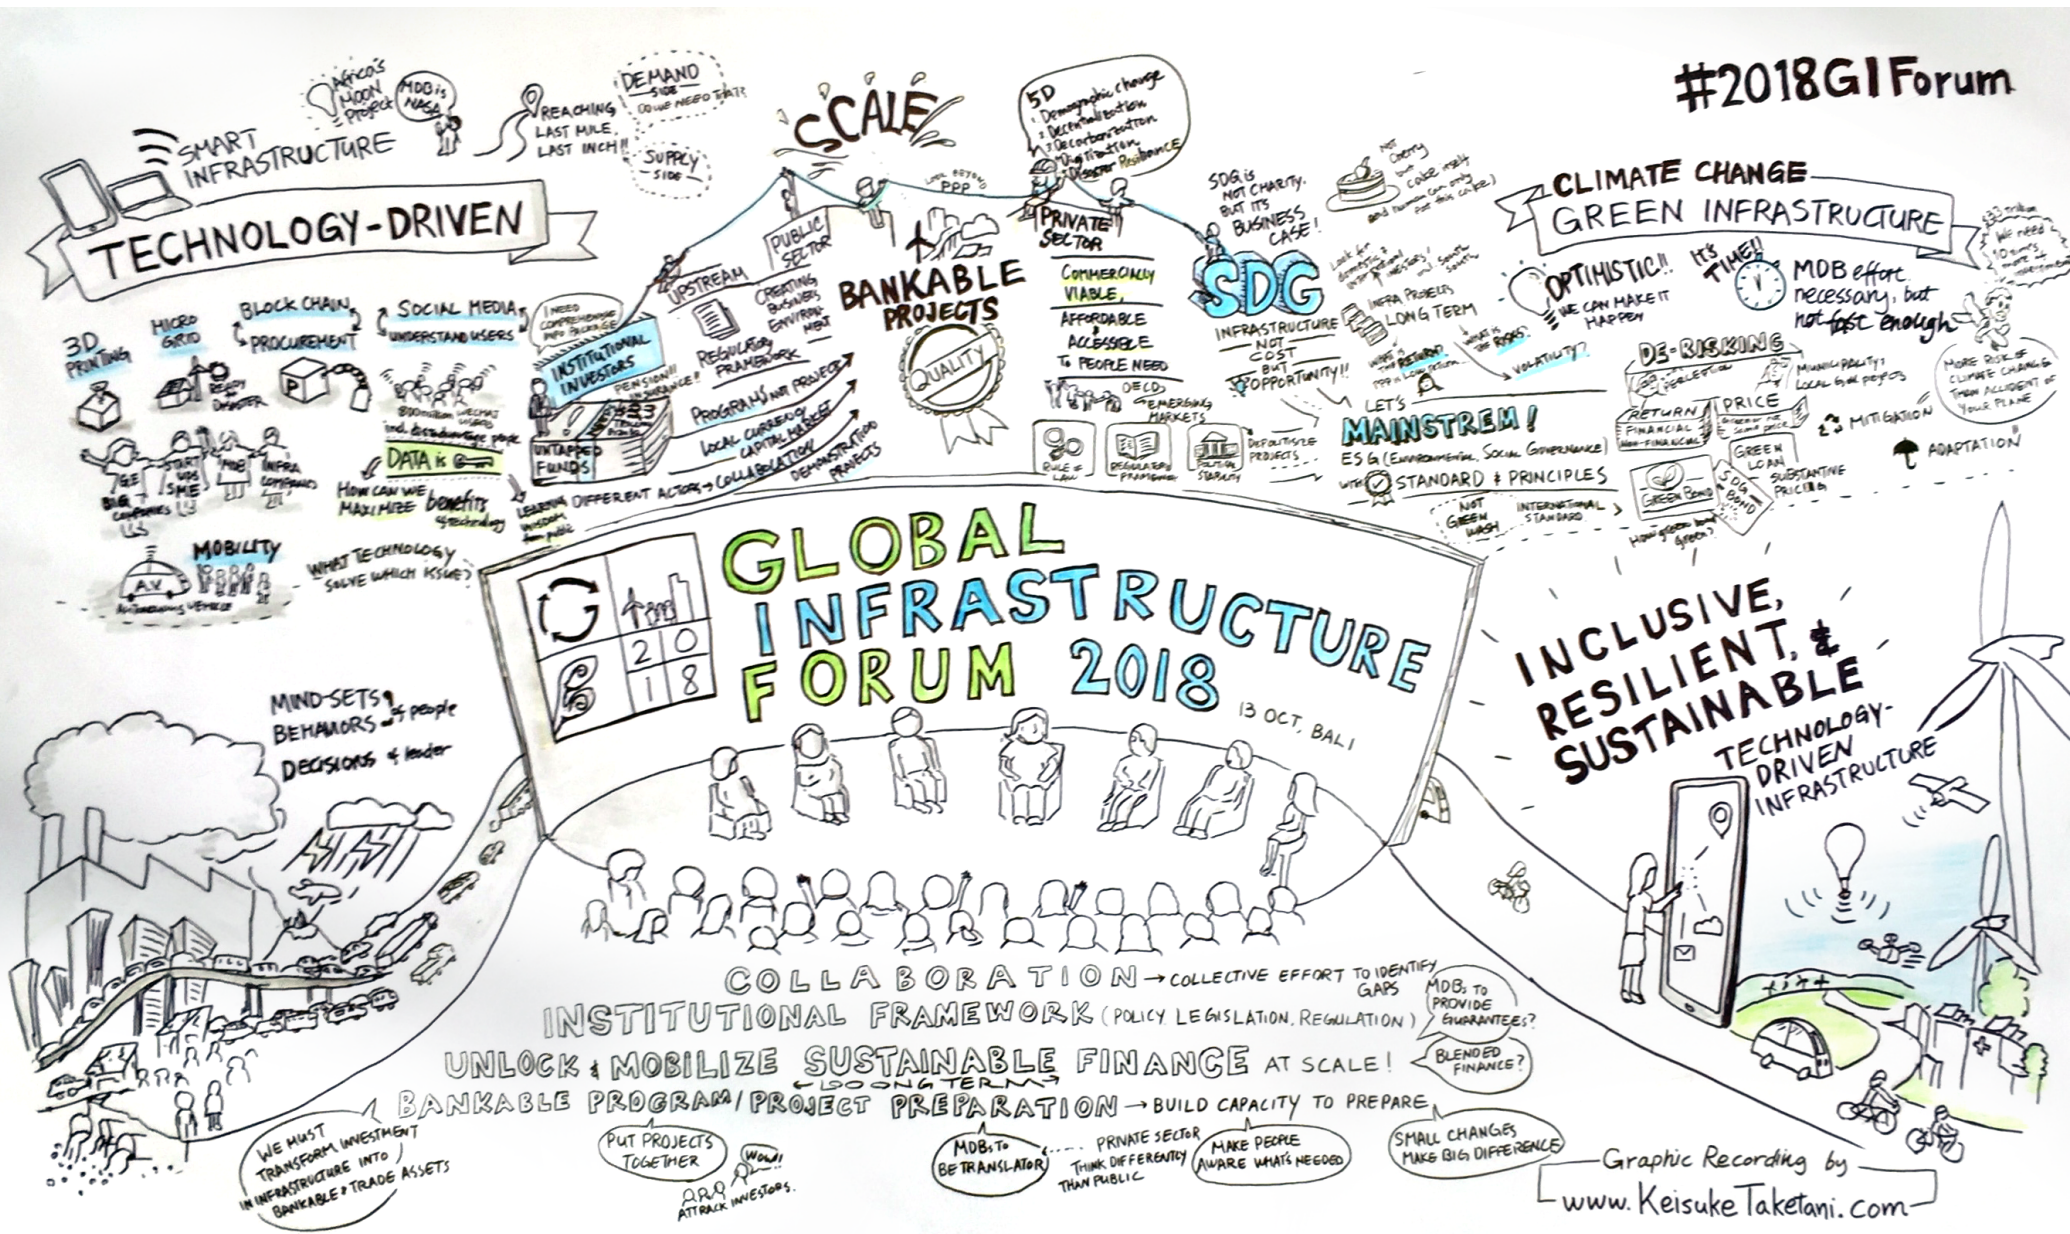 #2018GIForum
Africa's
MOON
Project
MDB is
NASA
SMART
INFRASTRUCTURE
REACHING
LAST MILE,
LAST INCH!!
DEMAND
SIDE
DO WE NEED THAT?
SUPPLY
SIDE
TECHNOLOGY-DRIVEN
3D
PRINTING
MICRO
GRID
READY
DISASTER
BLOCK CHAIN
PROCUREMENT
P
SOCIAL MEDIA
UNDERSTAND USERS
WECHAT
GE
BIG
COMPANIES
START
UPS
SME
MDB
INFRA
COMPANIES
DATA is
HOW CAN WE
MAXIMIZE benefits
of technology
MOBILITY
A.V.
AUTONOMOUS VEHICLE
WHAT TECHNOLOGY
SOLVE WHICH ISSUE?
SCALE
I NEED
COMPREHENSIVE
INFO PACKAGE
INSTITUTIONAL
INVESTORS
PENSION!!
INSURANCE!!
UNTAPPED
FUNDS
UPSTREAM
PUBLIC
SECTOR
CREATING
BUSINESS
ENVIRON-
MENT
REGULATORY
FRAMEWORK
PROGRAMS NOT PROJECT
LOCAL CURRENCY
CAPITAL MARKET
COLLABORATION
DEMONSTRATION
PROJECTS
LEARN
WISDOM
from public
DIFFERENT ACTORS
LOOK BEYOND
PPP
BANKABLE
PROJECTS
QUALITY
5D
1 Demographic change
2 Decentralization
3 Decarbonization
Digitization
Disaster Resilience
PRIVATE
SECTOR
COMMERCIALLY
VIABLE,
AFFORDABLE
&
ACCESSIBLE
TO PEOPLE NEED
OECD
EMERGING
MARKETS
RULE of
LAW
REGULATORY
FRAMEWORK
POLITICAL
STABILITY
DEPOLITISIZE
PROJECTS
SDG is
NOT CHARITY.
BUT IT'S
BUSINESS
CASE!
SDG
INFRASTRUCTURE
NOT
COST
BUT
OPPORTUNITY!!
NOT
Cherry
but
cake itself
INFRA PROJECTS
LONG TERM
WHAT IS
the RETURN?
WHAT IS
the RISKS?
VOLATILITY?
LET'S
MAINSTREM!
ESG (ENVIRONMENTAL, SOCIAL GOVERNANCE)
WITH STANDARD & PRINCIPLES
NOT
GREEN
WASH
INTERNATIONAL
STANDARD
CLIMATE CHANGE
GREEN INFRASTRUCTURE
We need
10 times
more
OPTIMISTIC!!
WE CAN MAKE IT
HAPPEN
IT'S
TIME!!
MDB effort
necessary, but
not fast enough
MORE RISK OF
CLIMATE CHANGE
THAN ACCIDENT OF
YOUR PLANE
DE-RISKING
PERCEPTION
MUNICIPALITY,
RETURN
FINANCIAL
NON-FINANCIAL
PRICE
MITIGATION
ADAPTATION
GREEN
LOAN
SUBSTANTIVE
PRICING
GREEN BOND
SDG
BOND
How green bond
green?
GLOBAL
INFRASTRUCTURE
FORUM 2018
20
18
13 OCT, BALI
MIND-SETS &
BEHAVIORS of people
DECISIONS of leader
INCLUSIVE,
RESILIENT, &
SUSTAINABLE
TECHNOLOGY-
DRIVEN
INFRASTRUCTURE
COLLABORATION → COLLECTIVE EFFORT TO IDENTIFY
GAPS
INSTITUTIONAL FRAMEWORK (POLICY. LEGISLATION. REGULATION)
MDBs TO
PROVIDE
GUARANTEES?
UNLOCK & MOBILIZE SUSTAINABLE FINANCE AT SCALE!
BLENDED
FINANCE?
LOOONG TERM
BANKABLE PROGRAM/PROJECT PREPARATION → BUILD CAPACITY TO PREPARE
WE MUST
TRANSFORM INVESTMENT
IN INFRASTRUCTURE INTO
BANKABLE & TRADE ASSETS
PUT PROJECTS
TOGETHER
WOW!!
ATTRACK INVESTORS.
MDBs TO
BE TRANSLATOR
PRIVATE SECTOR
THINK DIFFERENTLY
THAN PUBLIC
MAKE PEOPLE
AWARE WHAT'S NEEDED
SMALL CHANGES
MAKE BIG DIFFERENCE
Graphic Recording by
www.KeisukeTaketani.com